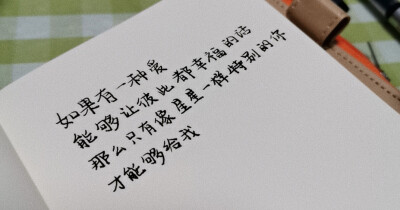 如果有一种爱
能够让彼此都幸福的话
那么只有像星星一样特别的你
才能够给我